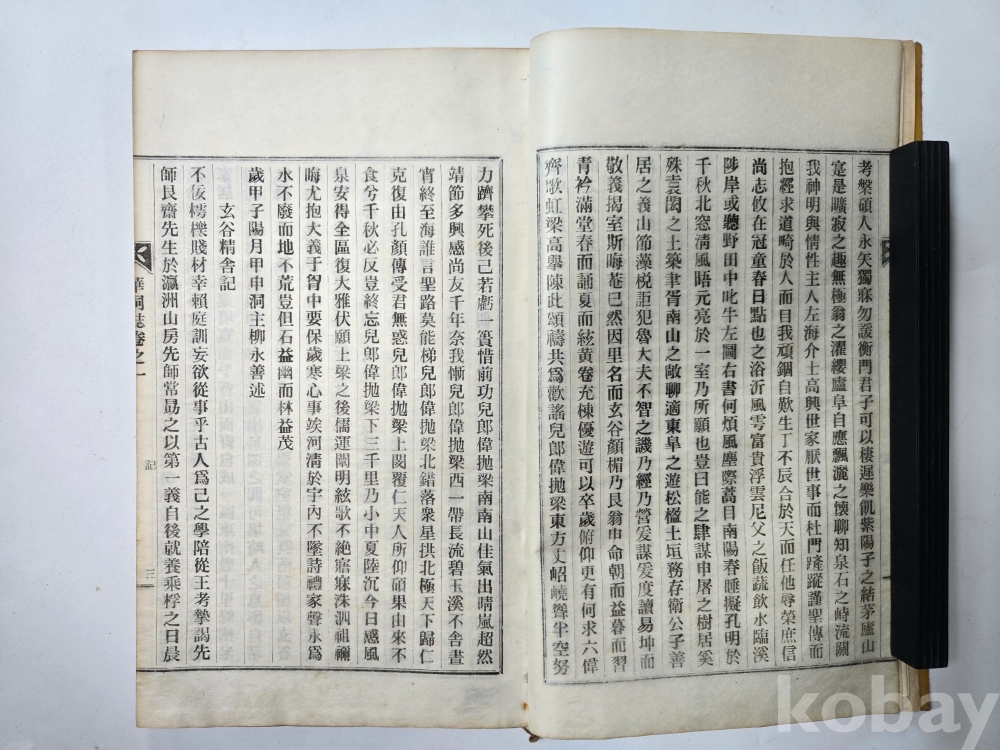 考槃碩人永矢獨寐勿諼衡門君子可以棲遲樂飢紫陽子之結茅廬山
寔是曠寂之趣無極翁之濯纓廬阜自應飄灑之懷聊知泉石之峙流關
我神明與情性主人左海介士高興世家厭世事而杜門蹤謹聖傳而
抱經求道畸於人而目我頑錮自歎生丁不辰合於天而任他辱榮庶信
尚志攸在冠童春日點也之浴沂風雩富貴浮雲尼父之飯蔬飮水臨溪
陟岸或聽野田中叱牛左圖右書何煩風塵際蒿目南陽春睡擬孔明於
千秋北窓淸風晤元亮於一室乃所願也豈曰能之肆謀申屠之樹居奚
殊袁閎之土築聿胥南山之敞聊適東皐之遊松楹土垣務存衛公子善
居之義山節藻梲詎犯魯大夫不智之譏乃經乃營爰謀爰度讀易坤而
敬義揭室斯晦菴已然因里名而玄谷顔楣乃艮翁申命朝而益暮而習
靑衿滿堂春而誦夏而絃黃卷充棟優遊可以卒歲俯仰更有何求六偉
齊歌虹梁高擧陳此頌禱共爲歡謠兒郞偉抛梁東方丈岧嶢聳半空努
力躋攀死後已若虧一簣惜前功兒郞偉抛梁南南山佳氣出晴嵐超然
靖節多興感尙友千年奈我慚兒郞偉抛梁西一帶長流碧玉溪不舍晝
宵終至海誰言聖路莫能梯兒郞偉抛梁北錯落衆星拱北極天下歸仁
克復由孔顔傳受君無惑兒郞偉抛梁上閔覆仁天人所仰碩果由來不
食兮千秋必反豈終忘兒郞偉抛梁下三千里乃小中夏陸沉今日感風
泉安得全區復大雅伏願上梁之後儒運闡明絃歌不絶寤寐洙泗祖禰
晦尤抱大義于胷中要保歲寒心事竢河淸於宇內不墜詩禮家聲永爲
水不廢而地不荒豈但石益幽而林益茂
歲甲子陽月甲申洞主柳永善述
玄谷精舍記
不佞樗櫟賤材幸賴庭訓妄欲從事乎古人爲己之學陪從王考摯謁先
師艮齋先生於瀛洲山房先師常勗之以第一義自後就養乘桴之日晨
華洞誌卷之一
記
三
kobay